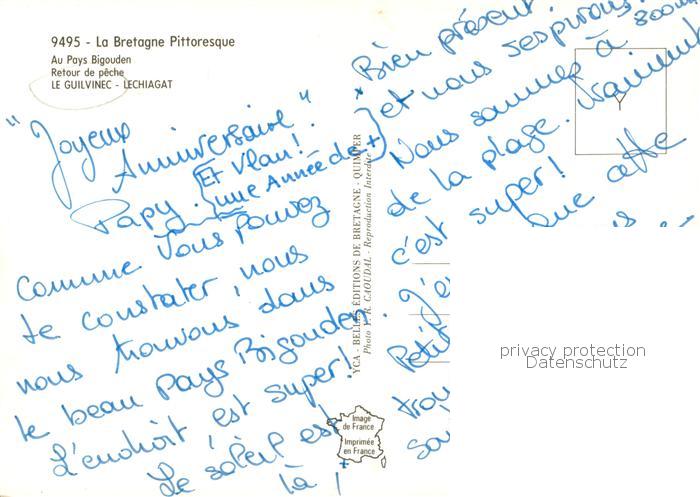 9495 - La Bretagne Pittoresque
Au Pays Bigouden
Retour de pêche
LE GUILVINEC - LECHIAGAT
"Joyeux
Anniversaire"
Papy.
Et Vlan!
une Année de +
Comme Vous pouvez
le constater, nous
nous trouvons dans
le beau pays Bigouden.
L'endroit est super!
Le soleil est
là!
YCA - BELLES ÉDITIONS DE BRETAGNE - QUIMPER
Photo Y. R. CAOUDAL - Reproduction Interdite
Image
de France
Imprimée
en France
Bien présent!
et nous respirons!
Nous sommes à 800m
de la plage. Vraiment
c'est super!
Que cette
J'e
Petit
trou
privacy protection
Datenschutz